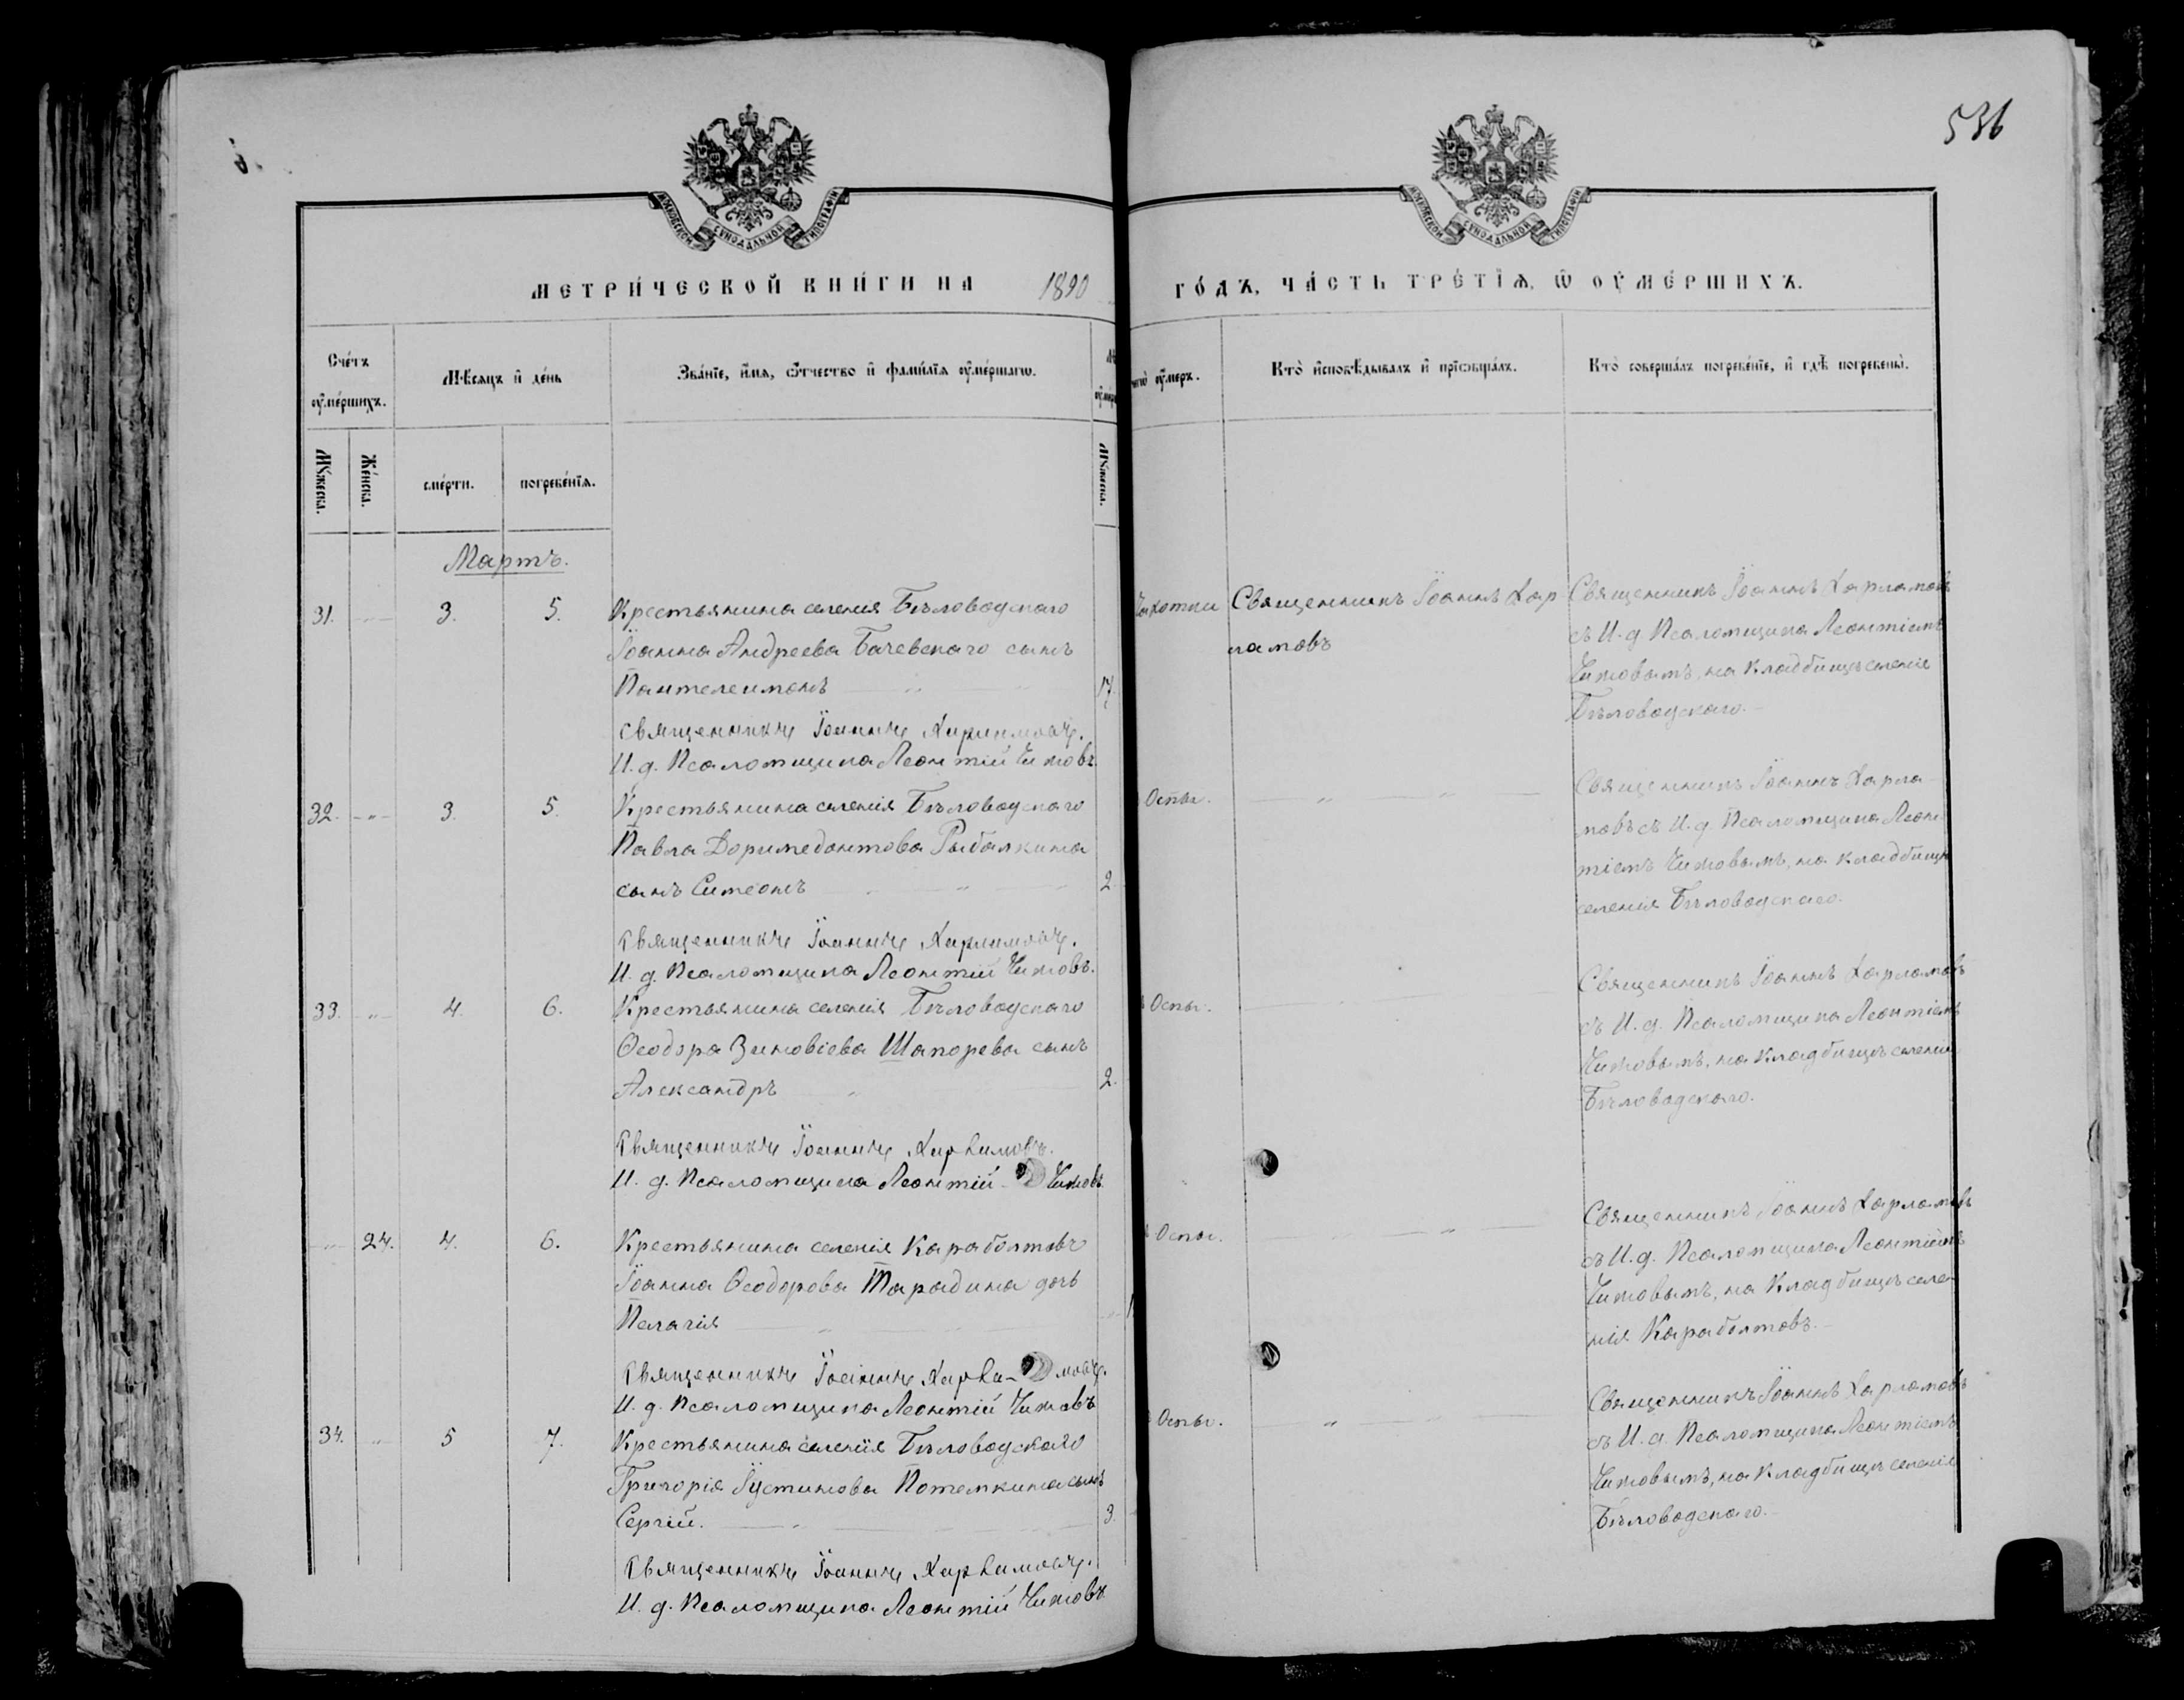 536
МОСКОВСКОЙ СѴНОДАЛЬНОЙ ТИПОГРАФІИ
МОСКОВСКОЙ СѴНОДАЛЬНОЙ ТИПОГРАФІИ
МЕТРИ́ЧЕСКОЙ КНИ́ГИ НА 1890
ГО́ДЪ, ЧА́СТЬ ТРЕ́ТІѦ, Ѡ҆ ОУ҆МЕ́РШИХЪ.
Сче́тъ
оу҆ме́ршихъ.
Мѣ́сѧцъ и҆ де́нь
Зва́нїе, и҆́мѧ, ѻ҆́тчество и҆ фами́лїѧ оу҆ме́ршагѡ.
оу҆́меръ.
Кто̀ и҆сповѣ́дывалъ и҆ прїѡбща́лъ.
Кто̀ соверша́лъ погребе́нїе, и҆ гдѣ̀ погребены̀.
Мꙋ́жеска.
Же́нска.
сме́рти.
погребе́нїѧ.
Мꙋ́жеска.
Мартъ.
31. 3. 5. Крестьянина селенія Бѣловодскаго
Іоанна Андреева Бачевскаго сынъ
Пантелеимонъ 17.
Священникъ Іоаннъ Харламовъ.
И. д. Псаломщика Леонтій Чижовъ
Чахотки Священникъ Іоаннъ Хар
ламовъ
Священникъ Іоаннъ Харламовъ
съ И. д. Псаломщика Леонтіемъ
Чижовымъ, на кладбищѣ селенія
Бѣловодскаго.
32. 3. 5. Крестьянина селенія Бѣловодскаго
Павла Доримедонтова Рыбалкина
сынъ Симеонъ 2
Священникъ Іоаннъ Харламовъ.
И. д. Псаломщика Леонтій Чижовъ.
Оспы.
Священникъ Іоаннъ Харла
мовъ съ И. д. Псаломщика Леон
тіемъ Чижовымъ, на кладбищѣ
селенія Бѣловодскаго.
33. 4. 6. Крестьянина селенія Бѣловодскаго
Ѳеодора Зиновіева Шапорева сынъ
Александръ 2.
Священникъ Іоаннъ Харламовъ.
И. д. Псаломщика Леонтій Чижовъ
Оспы.
Священникъ Іоаннъ Харламовъ
съ И. д. Псаломщика Леонтіемъ
Чижовымъ, на кладбищѣ селенія
Бѣловодскаго.
24. 4. 6. Крестьянина селенія Караболтовъ
Іоанна Ѳеодорова Тарадина дочь
Пелагія 1
Священникъ Іоаннъ Харла-мовъ.
И. д. Псаломщика Леонтій Чижовъ
Оспы.
Священникъ Іоаннъ Харламовъ
съ И. д. Псаломщика Леонтіемъ
Чижовымъ, на кладбищѣ селе-
нія Караболтовъ.
34. 5 7. Крестьянина селенія Бѣловодскаго
Григорія Іустинова Потемкина сынъ
Сергій. 3.
Священникъ Іоаннъ Харламовъ.
И. д. Псаломщика Леонтій Чижовъ
Оспы.
Священникъ Іоаннъ Харламовъ
съ И. д. Псаломщика Леонтіемъ
Чижовымъ, на кладбищѣ селенія
Бѣловодскаго.